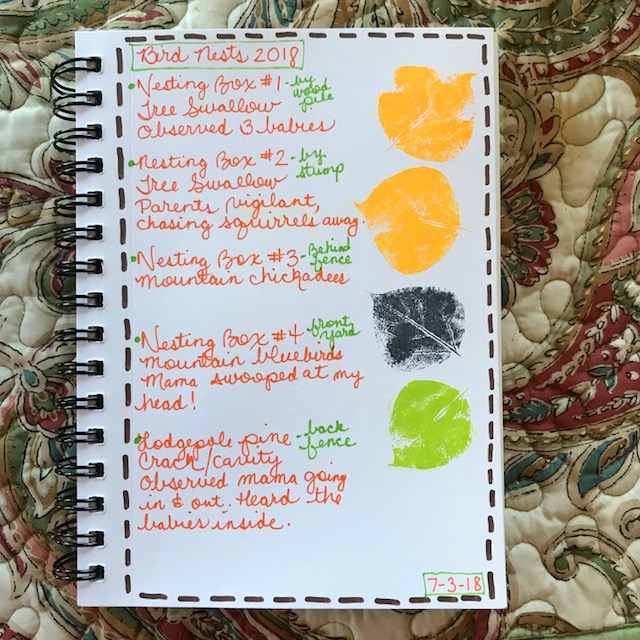 Bird Nests 2018
Nesting Box #1 - by wood pile
Tree Swallow
Observed 3 babies
Nesting Box #2 - by stump
Tree Swallow
Parents vigilant,
chasing squirrels away.
Nesting Box #3 - Behind fence
Mountain chickadees
Nesting Box #4 - front yard
Mountain bluebirds
Mama swooped at my
head!
Lodgepole pine - back fence
Crack/cavity
Observed mama going
in & out. Heard the
babies inside.
7-3-18